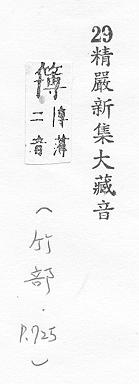 29精嚴新集大藏音
簿 淳薄二音
（竹部．P.725）